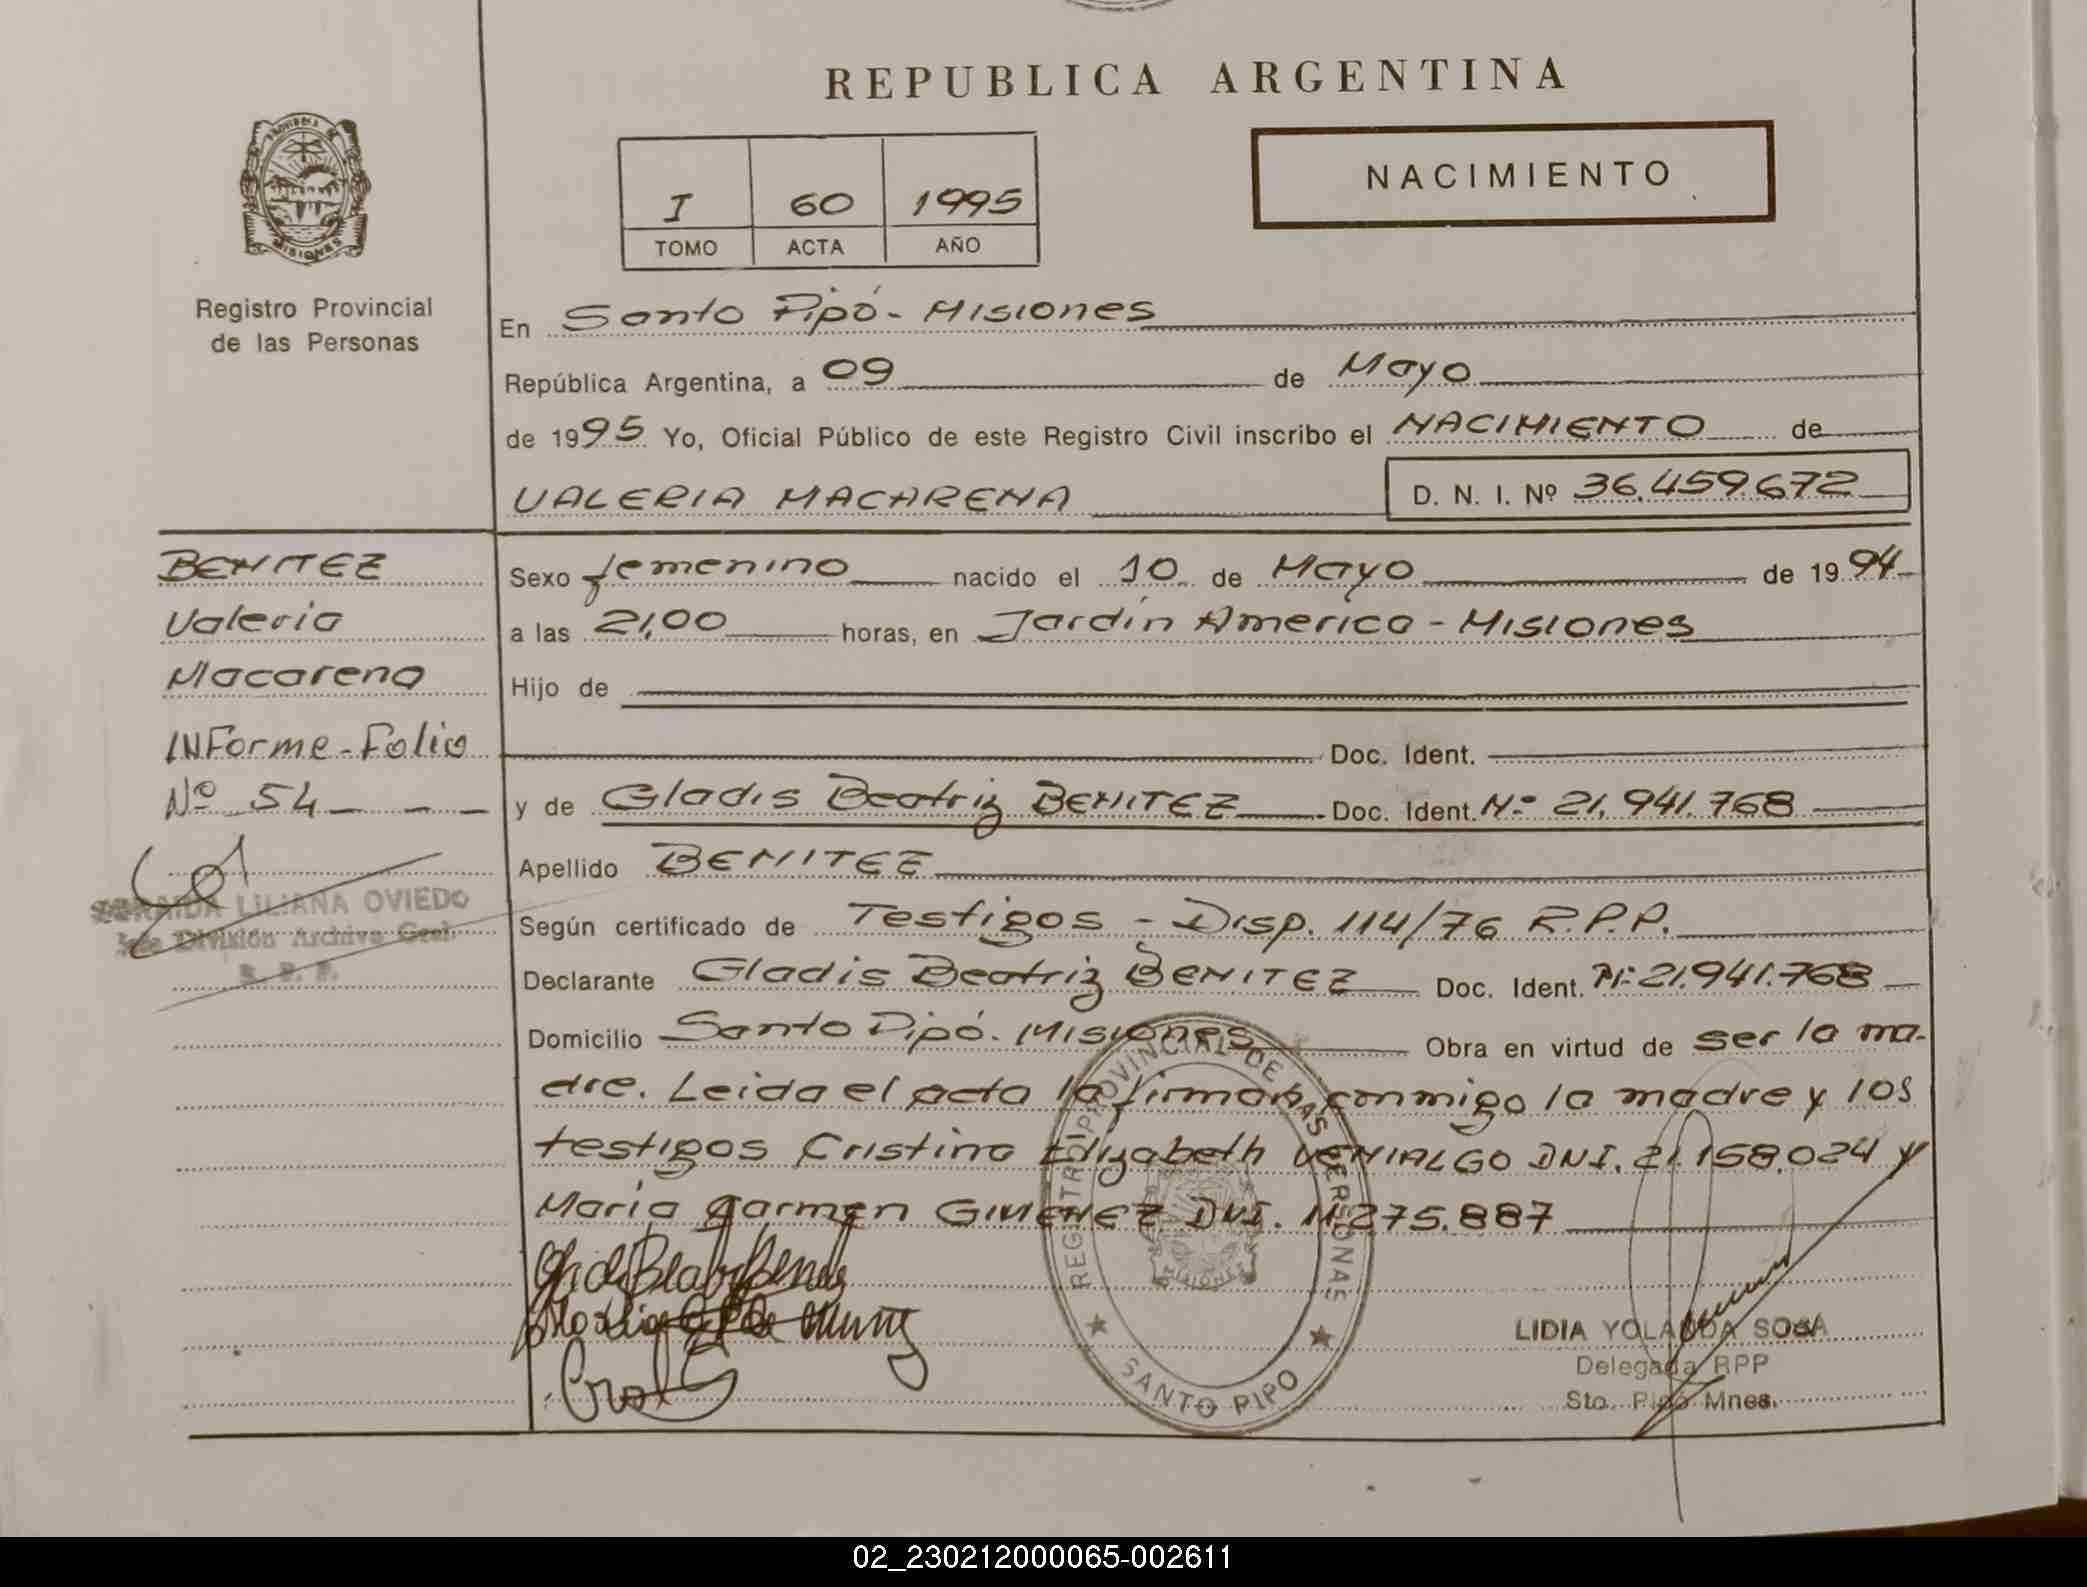 REPUBLICA ARGENTINA
NACIMIENTO
I 60 1995
TOMO ACTA AÑO
PROVINCIA DE
MISIONES
Registro Provincial
de las Personas
En Santo Pipó - Misiones
República Argentina, a 09 de Mayo
de 1995 Yo, Oficial Público de este Registro Civil inscribo el NACIMIENTO de
VALERIA MACARENA D. N. I. Nº 36.459.672
BENITEZ
Valeria
Macarena
INForme-Folio
Nº 54
LILIANA OVIEDO
Jefe División Archivo Gral.
R. P. P.
Sexo femenino nacido el 10 de Mayo de 1994
a las 21,00 horas, en Jardín America - Misiones
Hijo de
Doc. Ident.
y de Gladis Beatriz BENITEZ Doc. Ident. Nº 21.941.768
Apellido BENITEZ
Según certificado de Testigos - Disp. 114/76 R.P.P.
Declarante Gladis Beatriz BENITEZ Doc. Ident. Nº 21.941.768
Domicilio Santo Pipó. Misiones Obra en virtud de ser la ma-
dre. Leida el acta la firman conmigo la madre y los
testigos Cristina Elizabeth VENIALGO DNI. 21.158.024 y
María Carmen GIMENEZ DNI. 11.275.887
REGISTRO PROVINCIAL DE LAS PERSONAS
MISIONES
SANTO PIPO
LIDIA YOLANDA SOSA
Delegada RPP
Sto. Pipó Mnes.
02_230212000065-002611